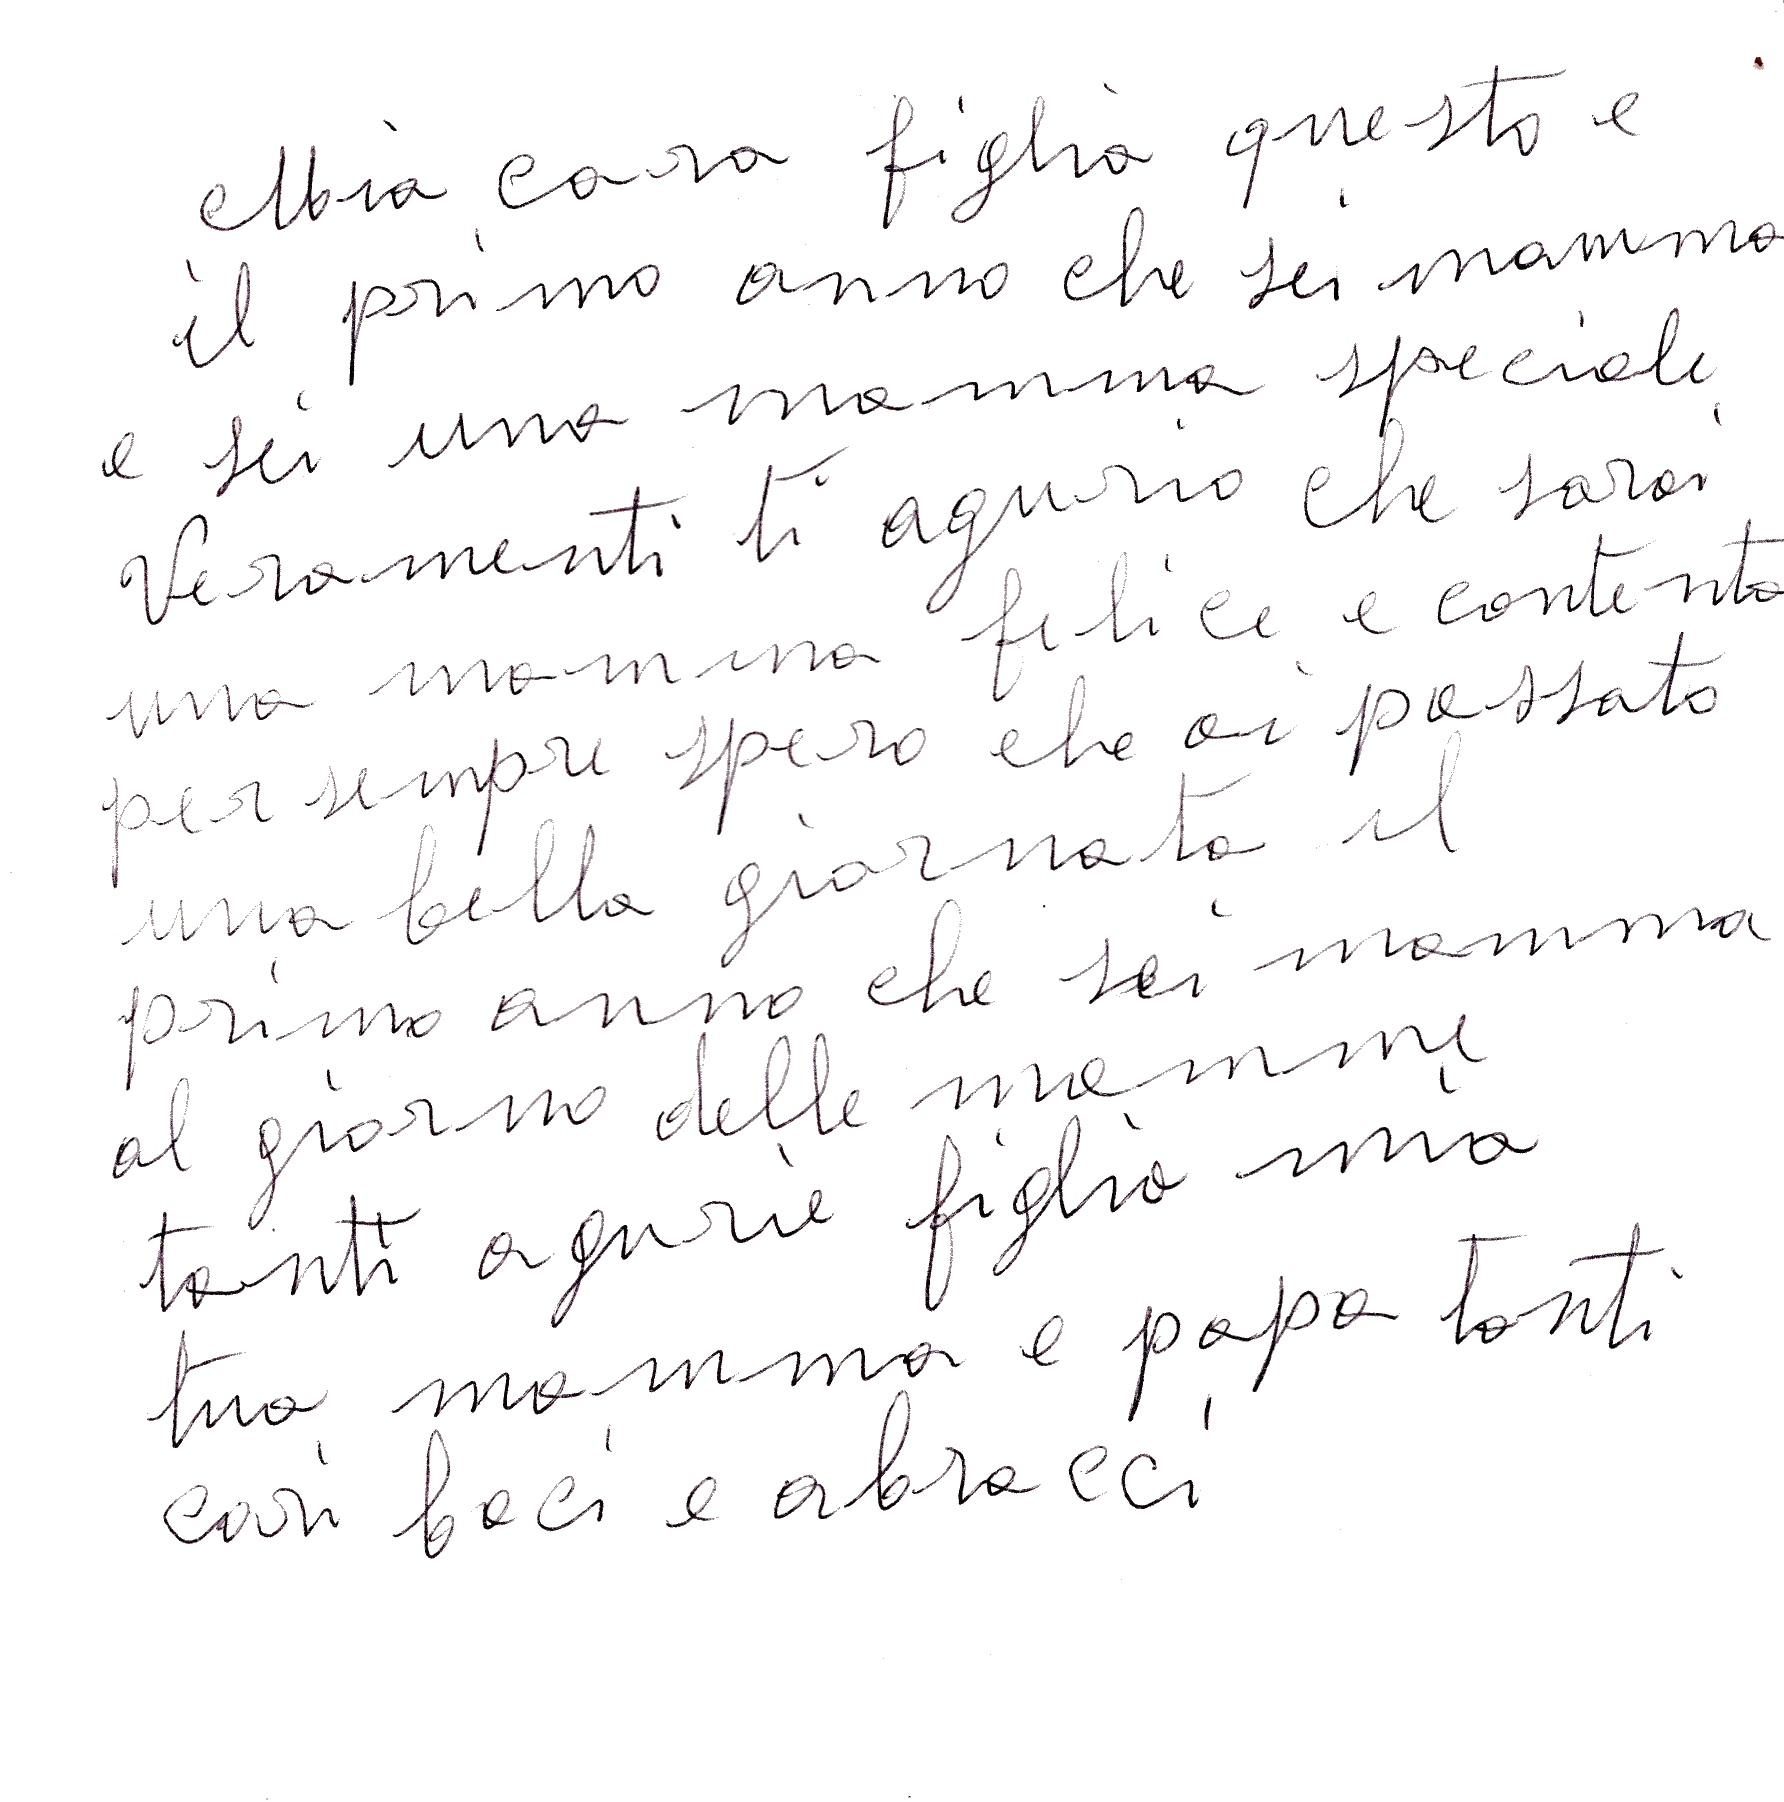 Mia cara figlia questo e
il primo anno che sei mamma
e sei una mamma speciale
veramenti ti agurio che sarai
una mamma felice e contenta
per sempre spero che ai passato
una bella giornata il
primo anno che sei mamma
al giorno delle mamme
tanti agurie figlia mia
tua mamma e papa tanti
cari baci e abracci